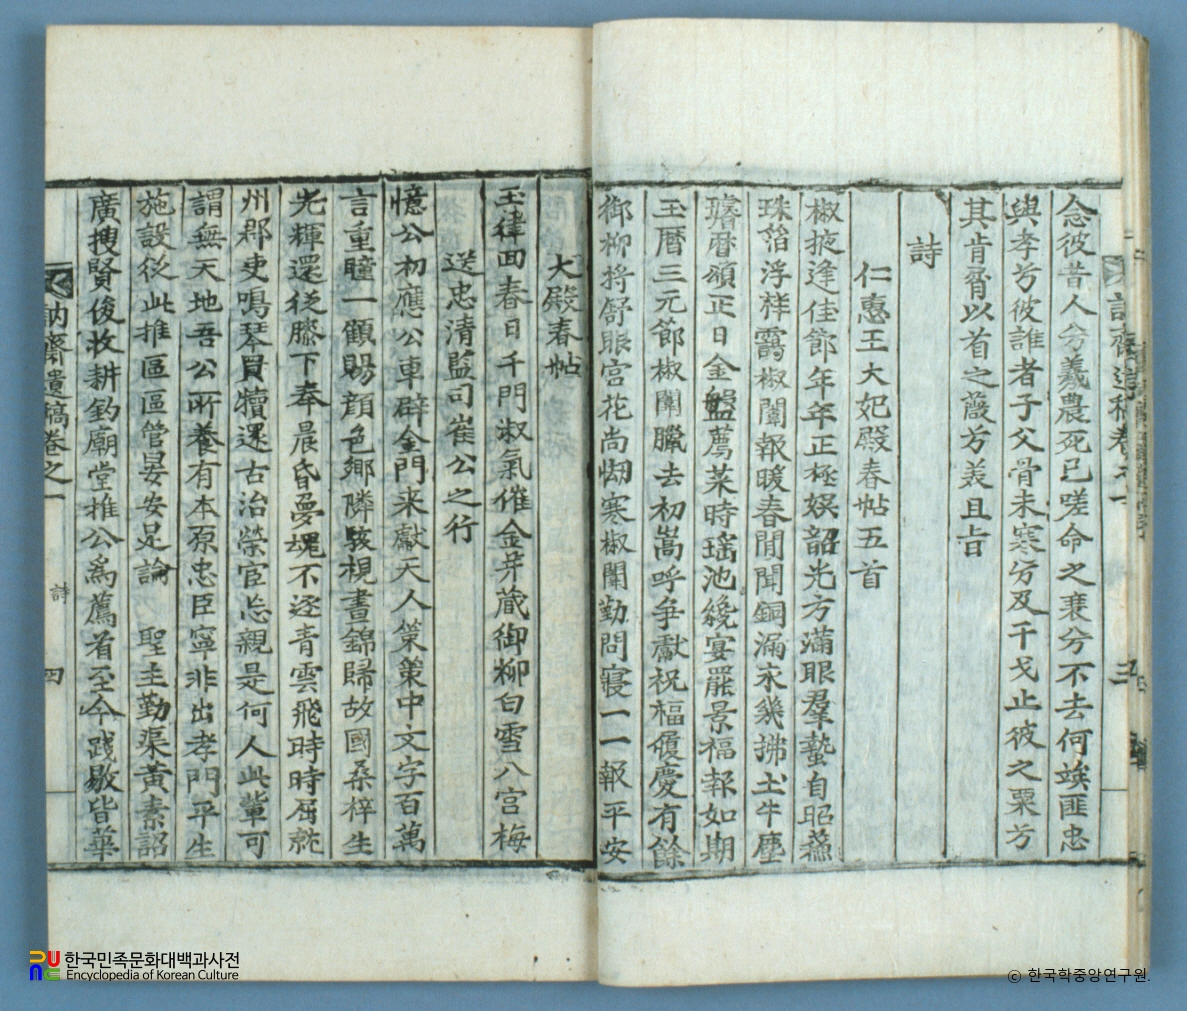 念彼昔人兮羲農死已嗟命之衰兮不去何竢匪忠
與孝兮彼誰者子父骨未寒兮及干戈止彼之粟兮
其肯胥以首之薇兮羙且旨
詩
仁惠王大妃殿春帖五首
椒掖逢佳節年年正極娱韶光方滿眼羣蟄自昭蘓
珠箔浮祥靄椒闈報暖春閒聞銅漏永幾拂土牛塵
曆頒正日金盤薦菜時瑤池纔宴罷景福報如期
玉曆三元節椒闈臘去初嵩呼争獻祝福履慶有餘
御柳將舒眼宮花尚㤼寒椒闈勤問寢一一報平安
大殿春帖
玉律回春日千門淑氣催金井蔵御柳白雪八宮梅
送忠清監司崔公之行
憶公初應公車辟金門来獻天人策策中文字百萬
言重瞳一顧賜顔色鄉隣駭視晝錦歸故國桑梓生
光輝還從膝下奉晨昏夢魂不逐青雲飛時時屈就
州郡吏鳴琴買犢還古治榮宦忘親是何人此輩可
謂無天地吾公所養有本原忠臣寧非出孝門平生
施設從此推區區管晏安足論 聖主勤渠黃素詔
廣搜賢俊收耕釣廟堂推公爲薦首至今践敭皆華
訥齋遺稿卷之一
詩
四
한국민족문화대백과사전
Encyclopedia of Korean Culture
© 한국학중앙연구원.